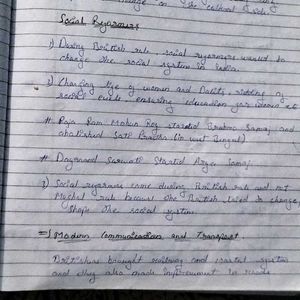 change on the cultural & side
Social Reformers
1) During British rule social reformers wanted to
change the social system in India.
2) Changing life of women and Dalits, ridding of
social evils, ensuring education for women etc
# Raja Ram Mohan Roy started Brahmo Samaj and
abolished Sati Pratha (in west Bengal)
# Dayanand Saraswati Started Arya Samaj
3) Social reformers came during British rule and not
Mughal rule because the British tried to change
shape the social system
=> Modern Communication and Transport
Britishers bought railway and postal system
and they also made improvement in roads